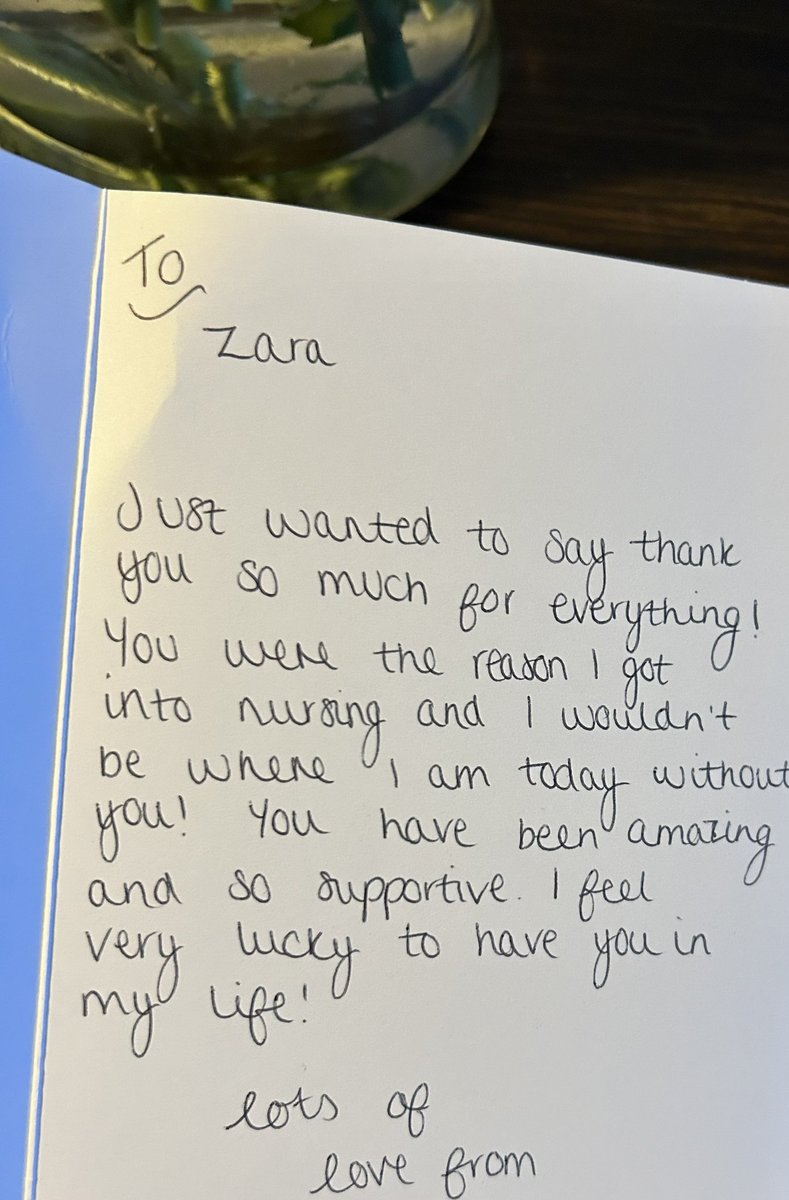 To
Zara
Just wanted to say thank
you so much for everything!
You were the reason I got
into nursing and I wouldn't
be where I am today without
you! You have been amazing
and so supportive. I feel
very lucky to have you in
my life!
lots of
love from